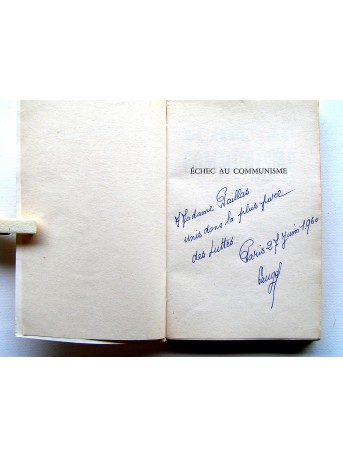 ÉCHEC AU COMMUNISME
Madame
unis dans la plus pure
des Luttes.
Paris 27 Juin 1960